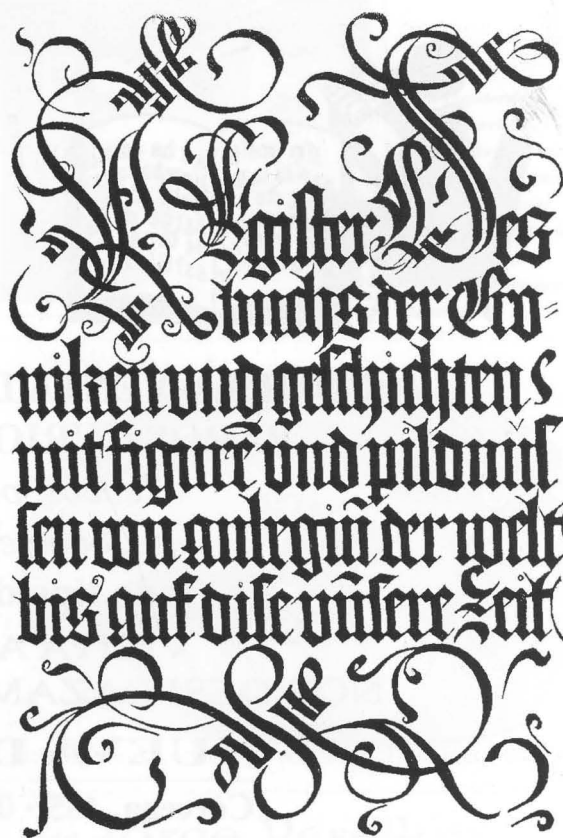 REgister Des
buchs der Cro⸗
niken vnd geschichten
mit figurẽ vnd pildnus
sen von anbegiñ der welt
bis auf dise vñsere Zeit